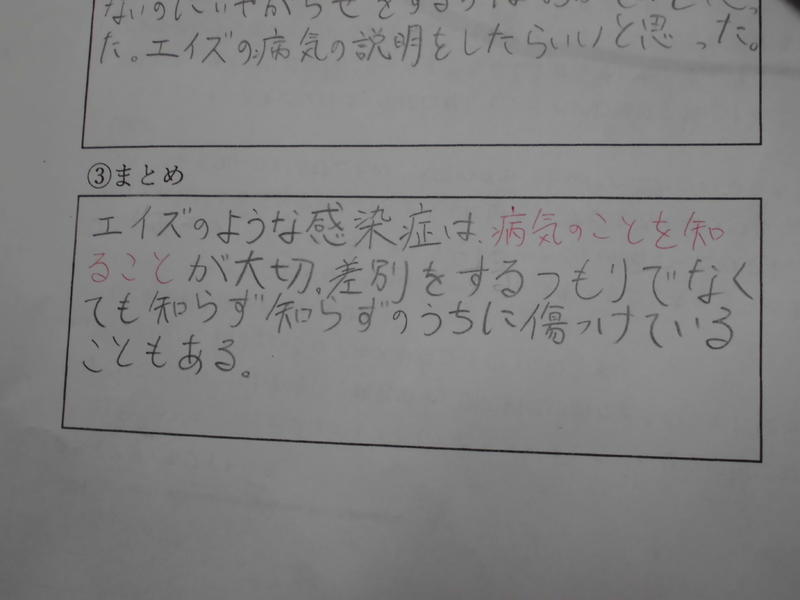 ないのにいやがらせをするのは
た。エイズの病気の説明をしたらいいと思った。
③まとめ
エイズのような感染症は、病気のことを知
ることが大切。差別をするつもりでなく
ても知らず知らずのうちに傷つけている
こともある。